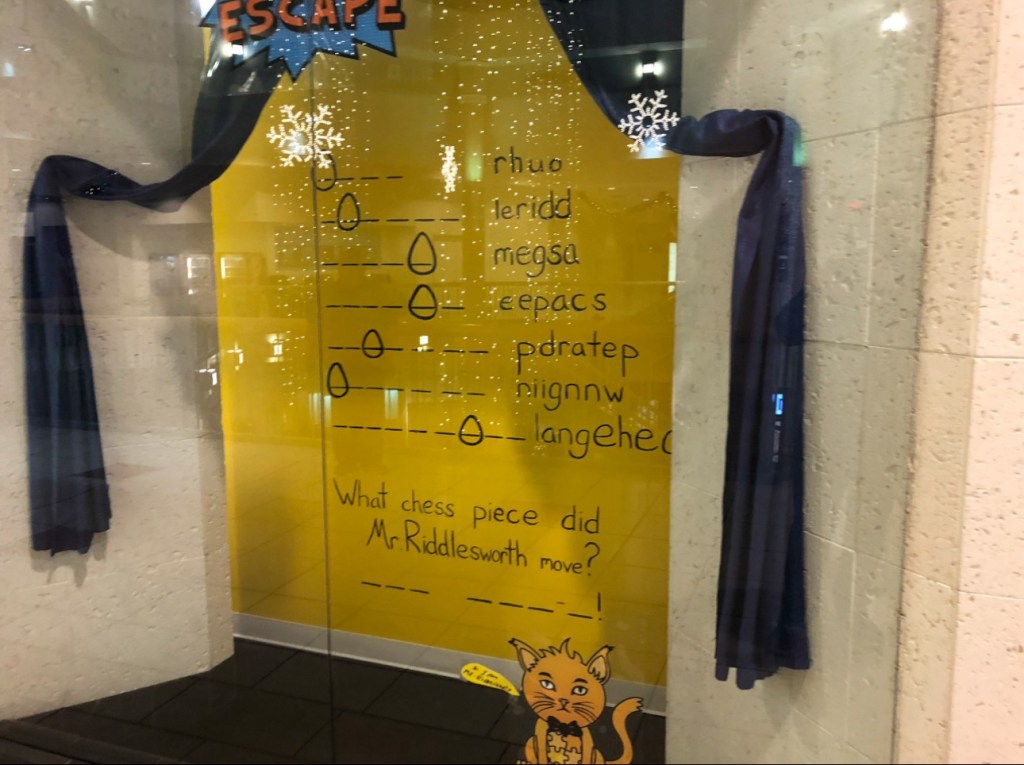 ESCAPE
rhuo
leridd
megsa
eepacs
pdratep
niignnw
langehec
What chess piece did
Mr. Riddlesworth move?
!